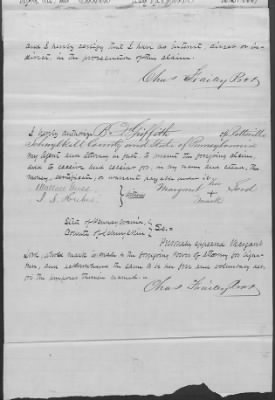 and I hereby certify that I have no interest, direct or in-
direct, in the prosecution of this claim.
Chas Frailey Prot
I hereby authorize B. Griffith of Pottsville
Schuylkill County and State of Pennsylvania
my Agent and attorney in fact, to present the foregoing claim,
and to receive and receipt for, in my name and stead, the
money, certificate, or warrant payable under it.
Margaret her Lord
Witness
+
mark
State of Pennsylvania,
County of Schuylkill
SS.
Personally appeared Margaret
Lord, whose mark is made to the foregoing Power of Attorney
and acknowledged the same to be her free and voluntary act
for the purposes therein named.
Chas Frailey Prot